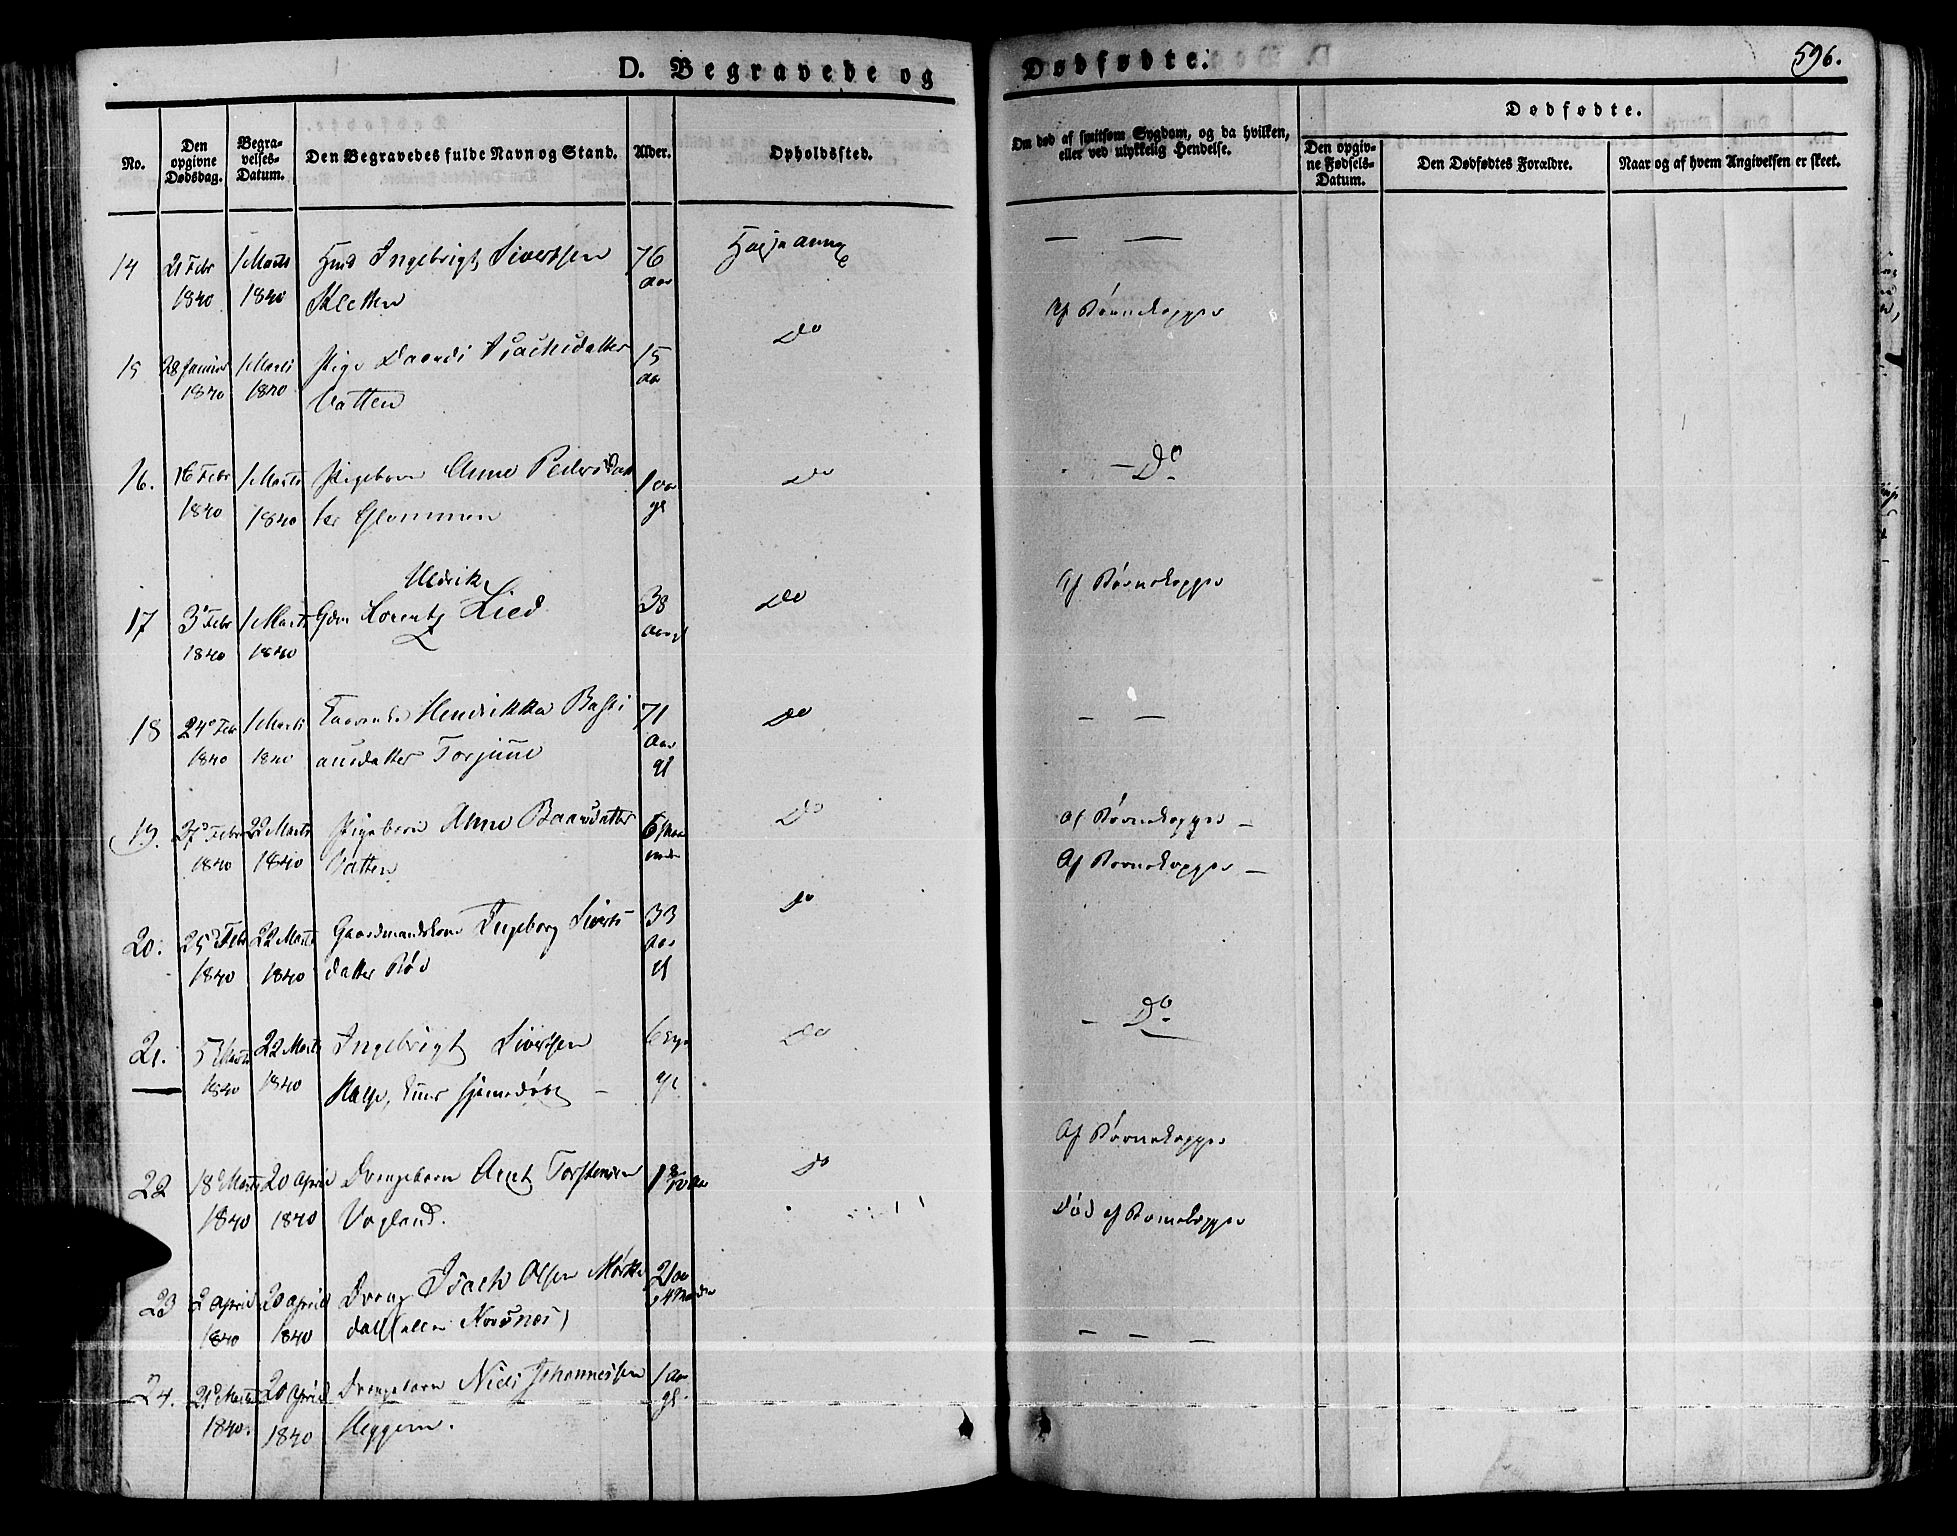 D. Begravede og
Dødfødte.
596.
No.
Den opgivne Dødsdag.
Begravelses-Datum.
Den Begravedes fulde Navn og Stand.
Alder.
Opholdssted.
Om død af smitsom Sygdom, og da hvilken,
eller ved ulykkelig Hendelse.
Dødfødte.
Den opgivne Fødsels-Datum.
Den Dødfødtes Forældre.
Naar og af hvem Angivelsen er skeet.
14 21 Febr 1 Marts Ingebrigt Sivertsen 76 — —
1840 1840 Kletten aar
Af Børnekopper
15 28 Januar 1 Marts Pige Isachsdatter 15 Do
1840 1840 Vatten aar
16. 16 Febr 1 Marts Pigebarn Anne Pedersdat 1 aar Do — Do
1840 1840 ter Glommen gl
Uldrik
17 3 Febr 1 Marts Gdm Lorentz Lied 38 Do Af Børnekopper
1840 1840
18 24 Febr 1 Marts Henrikka Basti 71 Do — —
1840 1840 ansdatter Torjuul Aar gl
19. 27 Febr 22 Marts Pigebarn Anne Baarsdatter 6 Do Af Børnekopper —
1840 1840 Vatten
Af Børnekopper —
20. 25 Febr 22 Marts Gaardmandskone Ingeborg Siverts 33 Do
1840 1840 datter Røv Aar gl
21. 5 Marts 22 Marts Ingebrigt Sivertsen 6 Do — Do
1840 1840 gl
Af Børnekopper
22 18 Marts 20 April Drengebarn Arnt Torstensen 1 8/12 Aar Do
1840 1840 Vagland.
Død af Børnekopper
23 2 April 20 April Dreng Isach Olsen Mørke
1840 1840 dal
— — —
24. 21 Marts 20 April Drengebarn Niels Johannessen 1 Aar
1840. 1840 Heggem. gl.